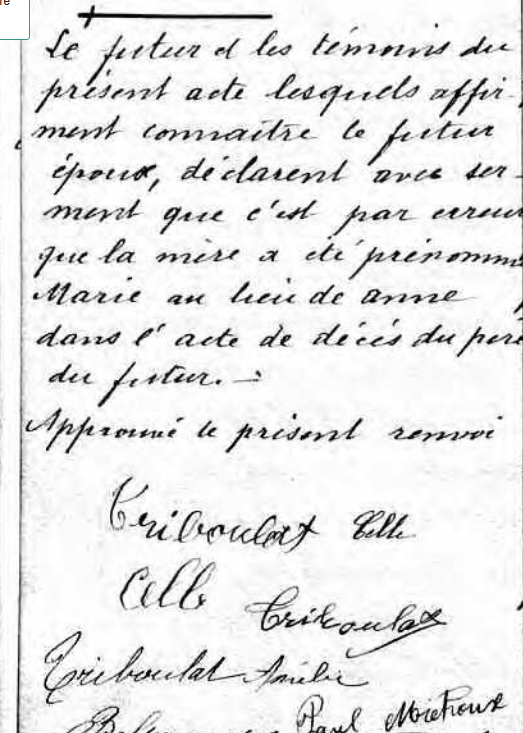 Le futur et les témoins du
présent acte lesquels affir-
ment connaître le futur
époux, déclarent avec ser-
ment que c'est par erreur
que la mère a été prénomm
Marie au lieu de anne
dans l'acte de décés du père
du futur. —
Approuvé le présent renvoi
Triboulat Celle
Celle
Triboulat
Triboulat Amélie
Paul